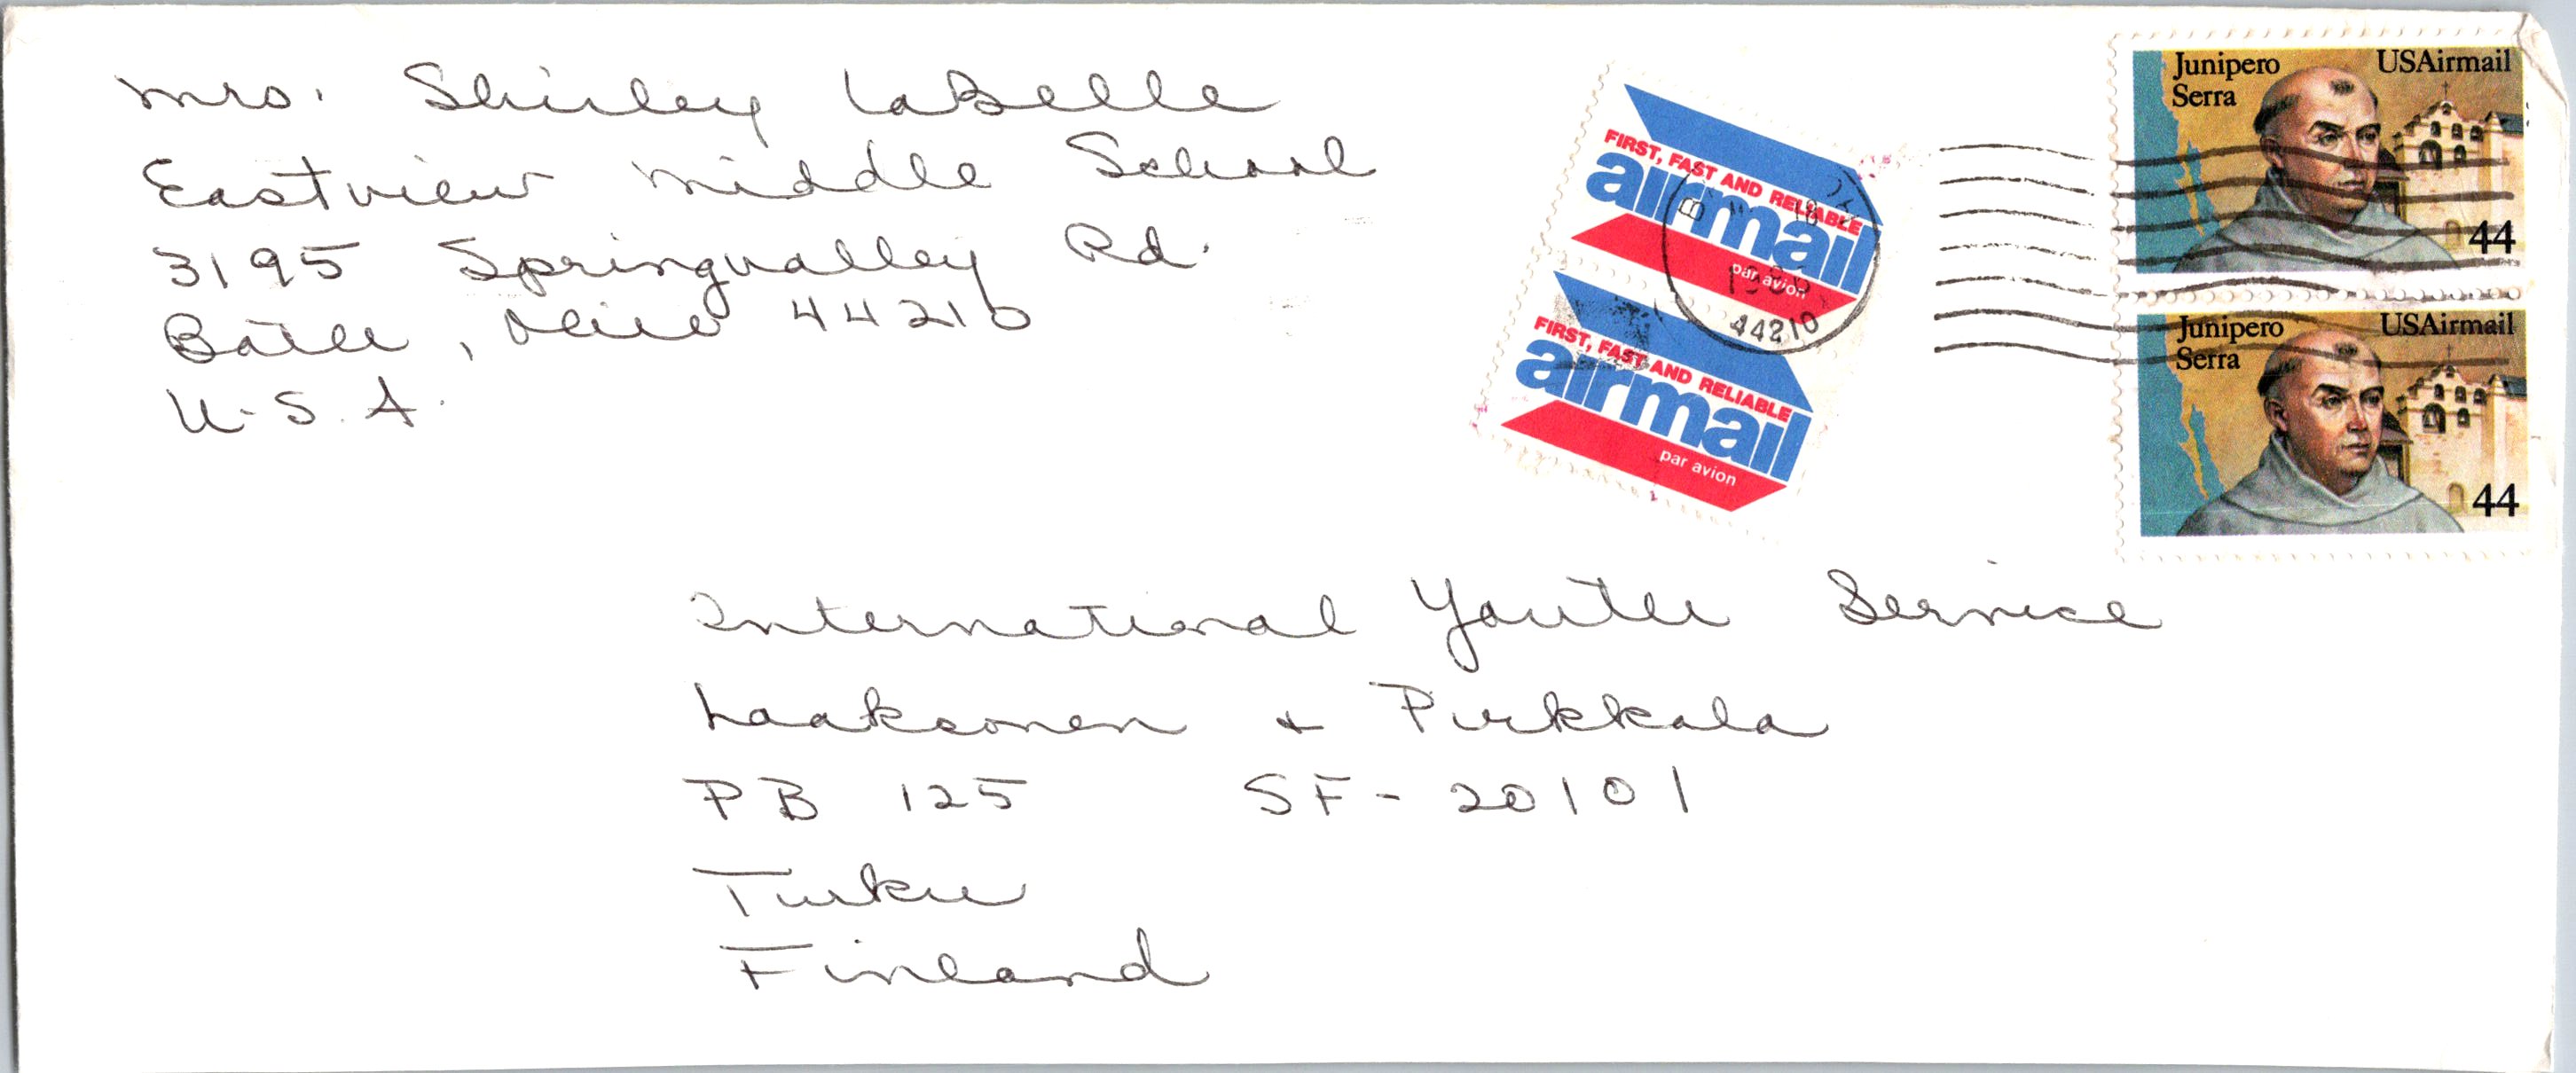 Mrs. Shirley LaBelle
Eastview Middle School
3195 Springvalley Rd.
Bath, Ohio 44210
U.S.A.
FIRST, FAST AND RELIABLE
airmail
par avion
44210
FIRST, FAST AND RELIABLE
airmail
par avion
Junipero Serra USAirmail
44
Junipero Serra USAirmail
44
International Youth Service
Laaksonen + Pirkkala
PB 125 SF-20101
Turku
Finland